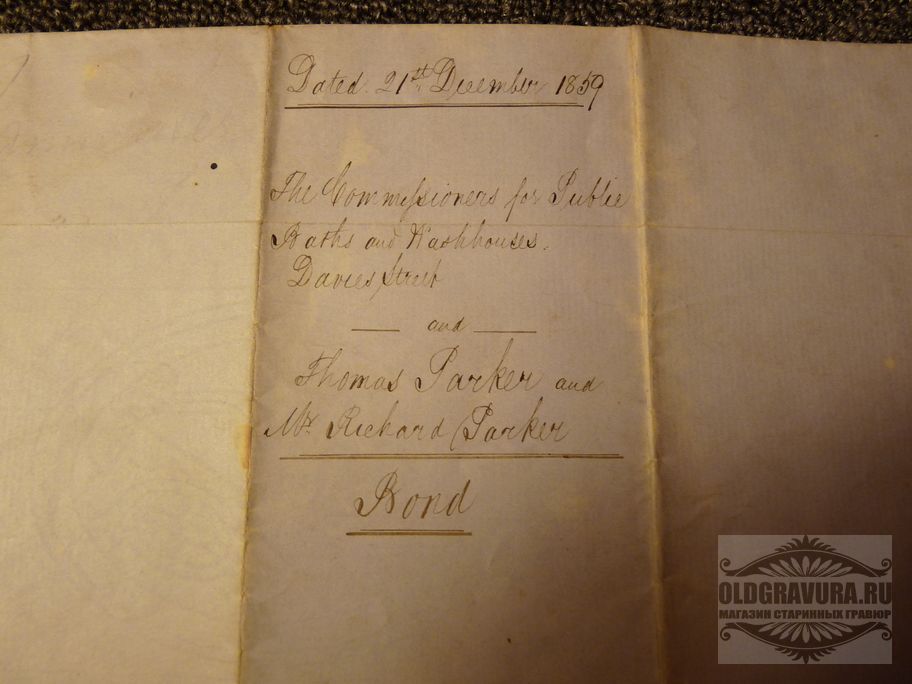 Dated. 21st December 1859
The Commissioners for Public
Baths and Washhouses.
Davies Street
and
Thomas Parker and
Mr. Richard Parker
Bond
OLDGRAVURA.RU
МАГАЗИН СТАРИННЫХ ГРАВЮР